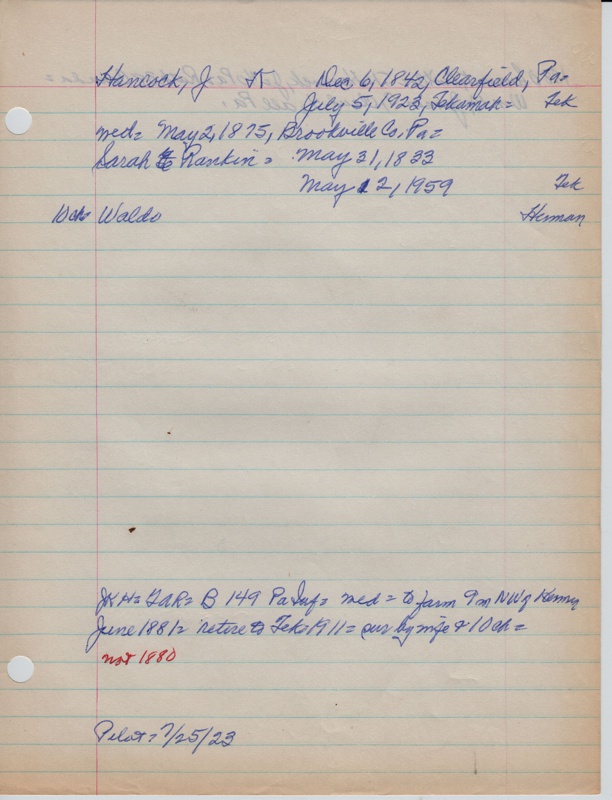 Hancock, J K Dec 6, 1842, Clearfield, Pa=
July 5, 1923, Tekamah= Tek
med= May 2, 1875, Brookville Co. Pa=
Sarah E Rankin= May 31, 1833
May 12, 1959 Tek
10 ch= Waldo Herman
JKH= GAR= B 149 Pa Inf= med= to farm 9 m NW of Herman
June 1881= retire to Tek 1911= sur by wife & 10 ch=
not 1880
Pilot= 7/25/23